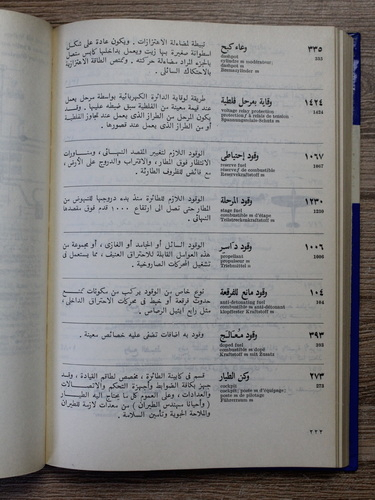 وعاء كبح
٣٣٥
dashpot
335
cylindre m modérateur;
dashpot m
Bremszylinder m
نبيطة لمضاءلة الاهتزازات . ويكون عادة على شكل
اسطوانة صغيرة بها زيت ويعمل بداخلها كابس متصل
بالجزء المراد مضاءلة حركته . وتمتص الطاقة الاهتزازية
بالاحتكاك السائلي .
وقاية بمرحل فلطية
١٤٢٤
voltage relay protection
1424
protection f à relais de tension
Spannungsrelais-Schutz m
طريقة لوقاية الدائرة الكهربائية بواسطة مرحل يعمل
عند قيمة معينة من الفلطية سبق ضبطه عليها . وقد
يكون المرحل من الطراز الذي يعمل عند تجاوز الفلطية
أو من الطراز الذي يعمل عند قصورها .
وقود إحتياطي
١٠٦٧
reserve fuel
1067
réserve f de combustible
Reservekraftstoff m
الوقود اللازم لتغيير المقصد النهائي ، ومناورات
الانتظار فوق المطار ، والاقتراب والدروج على الأرض ،
مع فائض للظروف الطارئة .
وقود المرحلة
١٢٣٠
stage fuel
1230
combustible m d'étape
Teilstreckenkraftstoff m
الوقود اللازم للطائرة منذ بدء دروجها للنهوض من
المطار حتى تصل الى ارتفاع ١٠٠٠ قدم فوق مقصدها
النهائي .
وقود داسر
١٠٠٦
propellant
1006
propulseur m
Treibmittel n
الوقود السائل أو الجامد أو الغازي ، أو مجموعة من
هذه العوامل القابلة للاحتراق العنيف ، مما يستعمل في
تشغيل المحركات الصاروخية .
وقود مانع للفرقعة
١٠٤
anti-detonating fuel
104
combustible m anti-détonant
klopffester Kraftstoff m
نوع خاص من الوقود يركب من مكونات تمنع
حدوث فرقعة أو خبط في محركات الاحتراق الداخلي ،
مثل رابع ايثيل الرصاص .
وقود معالج
٣٩٣
doped fuel
393
combustible m dopé
Kraftstoff m mit Zusatz
وقود به اضافات تضفي عليه خصائص معينة .
وكن الطيار
٢٧٣
cockpit
273
cockpit; poste m d'équipage;
poste m de pilotage
Führerraum m
قسم في كابينة الطائرة ، مخصص لطاقم القيادة ، وقد
جهز بكافة الضوابط وأجهزة التحكم والاتصالات
والعدادات ، وعلى العموم كل ما يحتاج اليه الطيار
( وأحيانا مهندس الطيران ) من معدات لازمة للطيران
والملاحة الجوية وتأمين السلامة .
٢٢٢